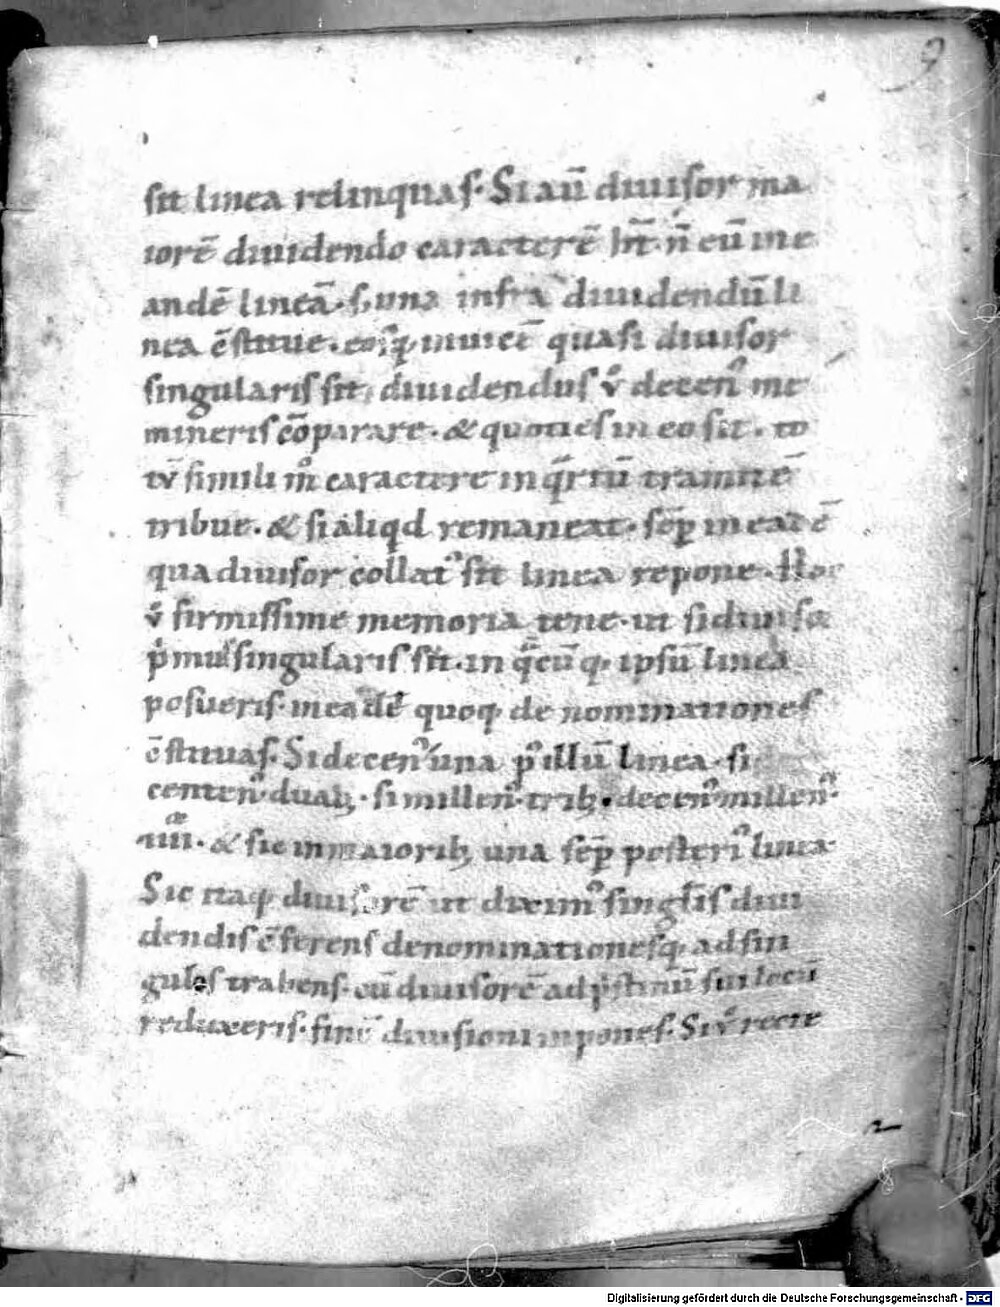 9
sit linea relinquas. Si aū diuisor ma
iorē diuidendo caracterē hr̄t. n̄ eū in e
andē lineā. s; una infra diuidendū li
nea cstitue. inuicē quasi diuisor
singularis sit, diuidendus v̊ decen᾿ me
mineris cōparare. & quoties in eo sit. to
tv̄ simili m̊ caractere in q̄rtū tramitē
tribue. & si aliqd remaneat. sēp in eadē
qua diuisor collat᾿ sit linea repone. Hoc
v̊ firmissime memoria tene. ut si diuiso
singularis sit. in q̄cūq; ipsū linea
posueris. in eadē quoq; denominationes
cstituas. Si decen᾿ una p᾿ illū linea. si
centen᾿ duab;. si millen᾿ trib;. decen᾿ millen᾿.
IIII. & sic in maiorib; una sēp posteri᾿ linea
Sic itaq; diuisorē ut dixim᾿ singlis diui
dendis cferens denominationesq; ad sin
gulos trahens. cū diuisorē ad pstinū sui locū
reduxeris. finē diuisioni inpones. Si v̊ recte
Digitalisierung gefördert durch die Deutsche Forschungsgemeinschaft - DFG